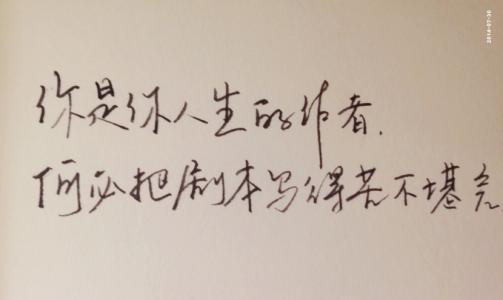 2014-07-30
你是你人生的作者.
何必把剧本写得苦不堪言